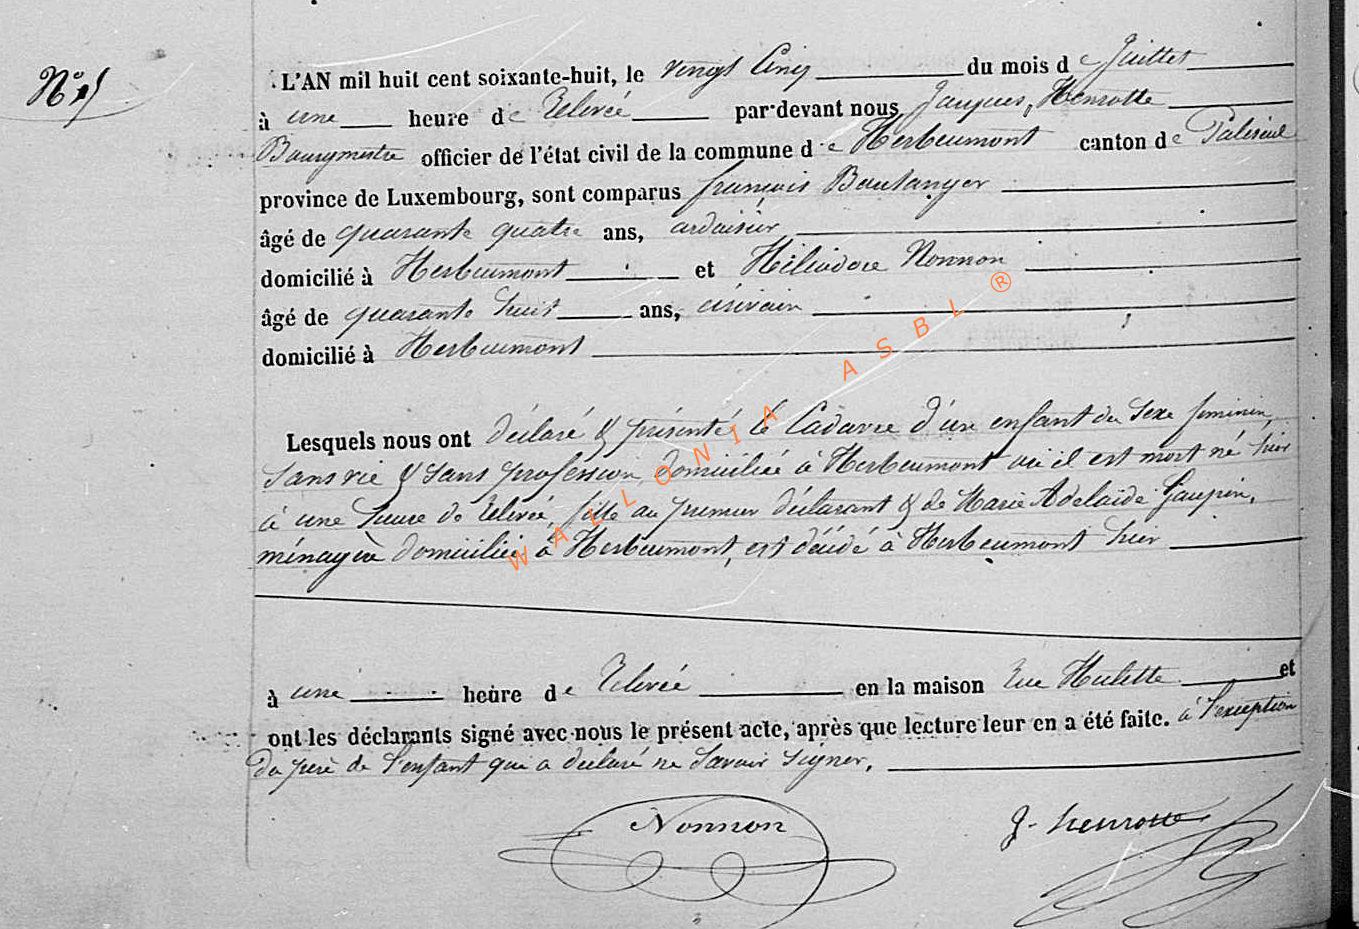 N° 5
L'AN mil huit cent soixante-huit, le vingt Cinq du mois de Juillet
à une heure de Relevée par-devant nous, Jacques, Henrotte
Bourgmestre officier de l'état civil de la commune de Herbeumont canton de Paliseul
province de Luxembourg, sont comparus françois Boulanger
âgé de quarante quatre ans, ardoisier
domicilié à Herbeumont et Héliodore Nonnon
âgé de quarante huit ans, écrivain
domicilié à Herbeumont
Lesquels nous ont déclaré & présenté le Cadavre d'un enfant du Sexe feminin
Sans vie & Sans profession, domiciliée à Herbeumont où il est mort né hier
à une heure de Relevée, fille au premier déclarant & de Marie Adelaïde Gaupin,
ménagère domiciliée à Herbeumont, est décédé à Herbeumont hier
à une heure de Relevée en la maison Rue Hulette et
ont les déclarants signé avec nous le présent acte, après que lecture leur en a été faite. à l'exception
du père de l'enfant qui a declaré ne Savoir Signer.
Nonnon
J. henrotte
WALLONIA ASBL ®